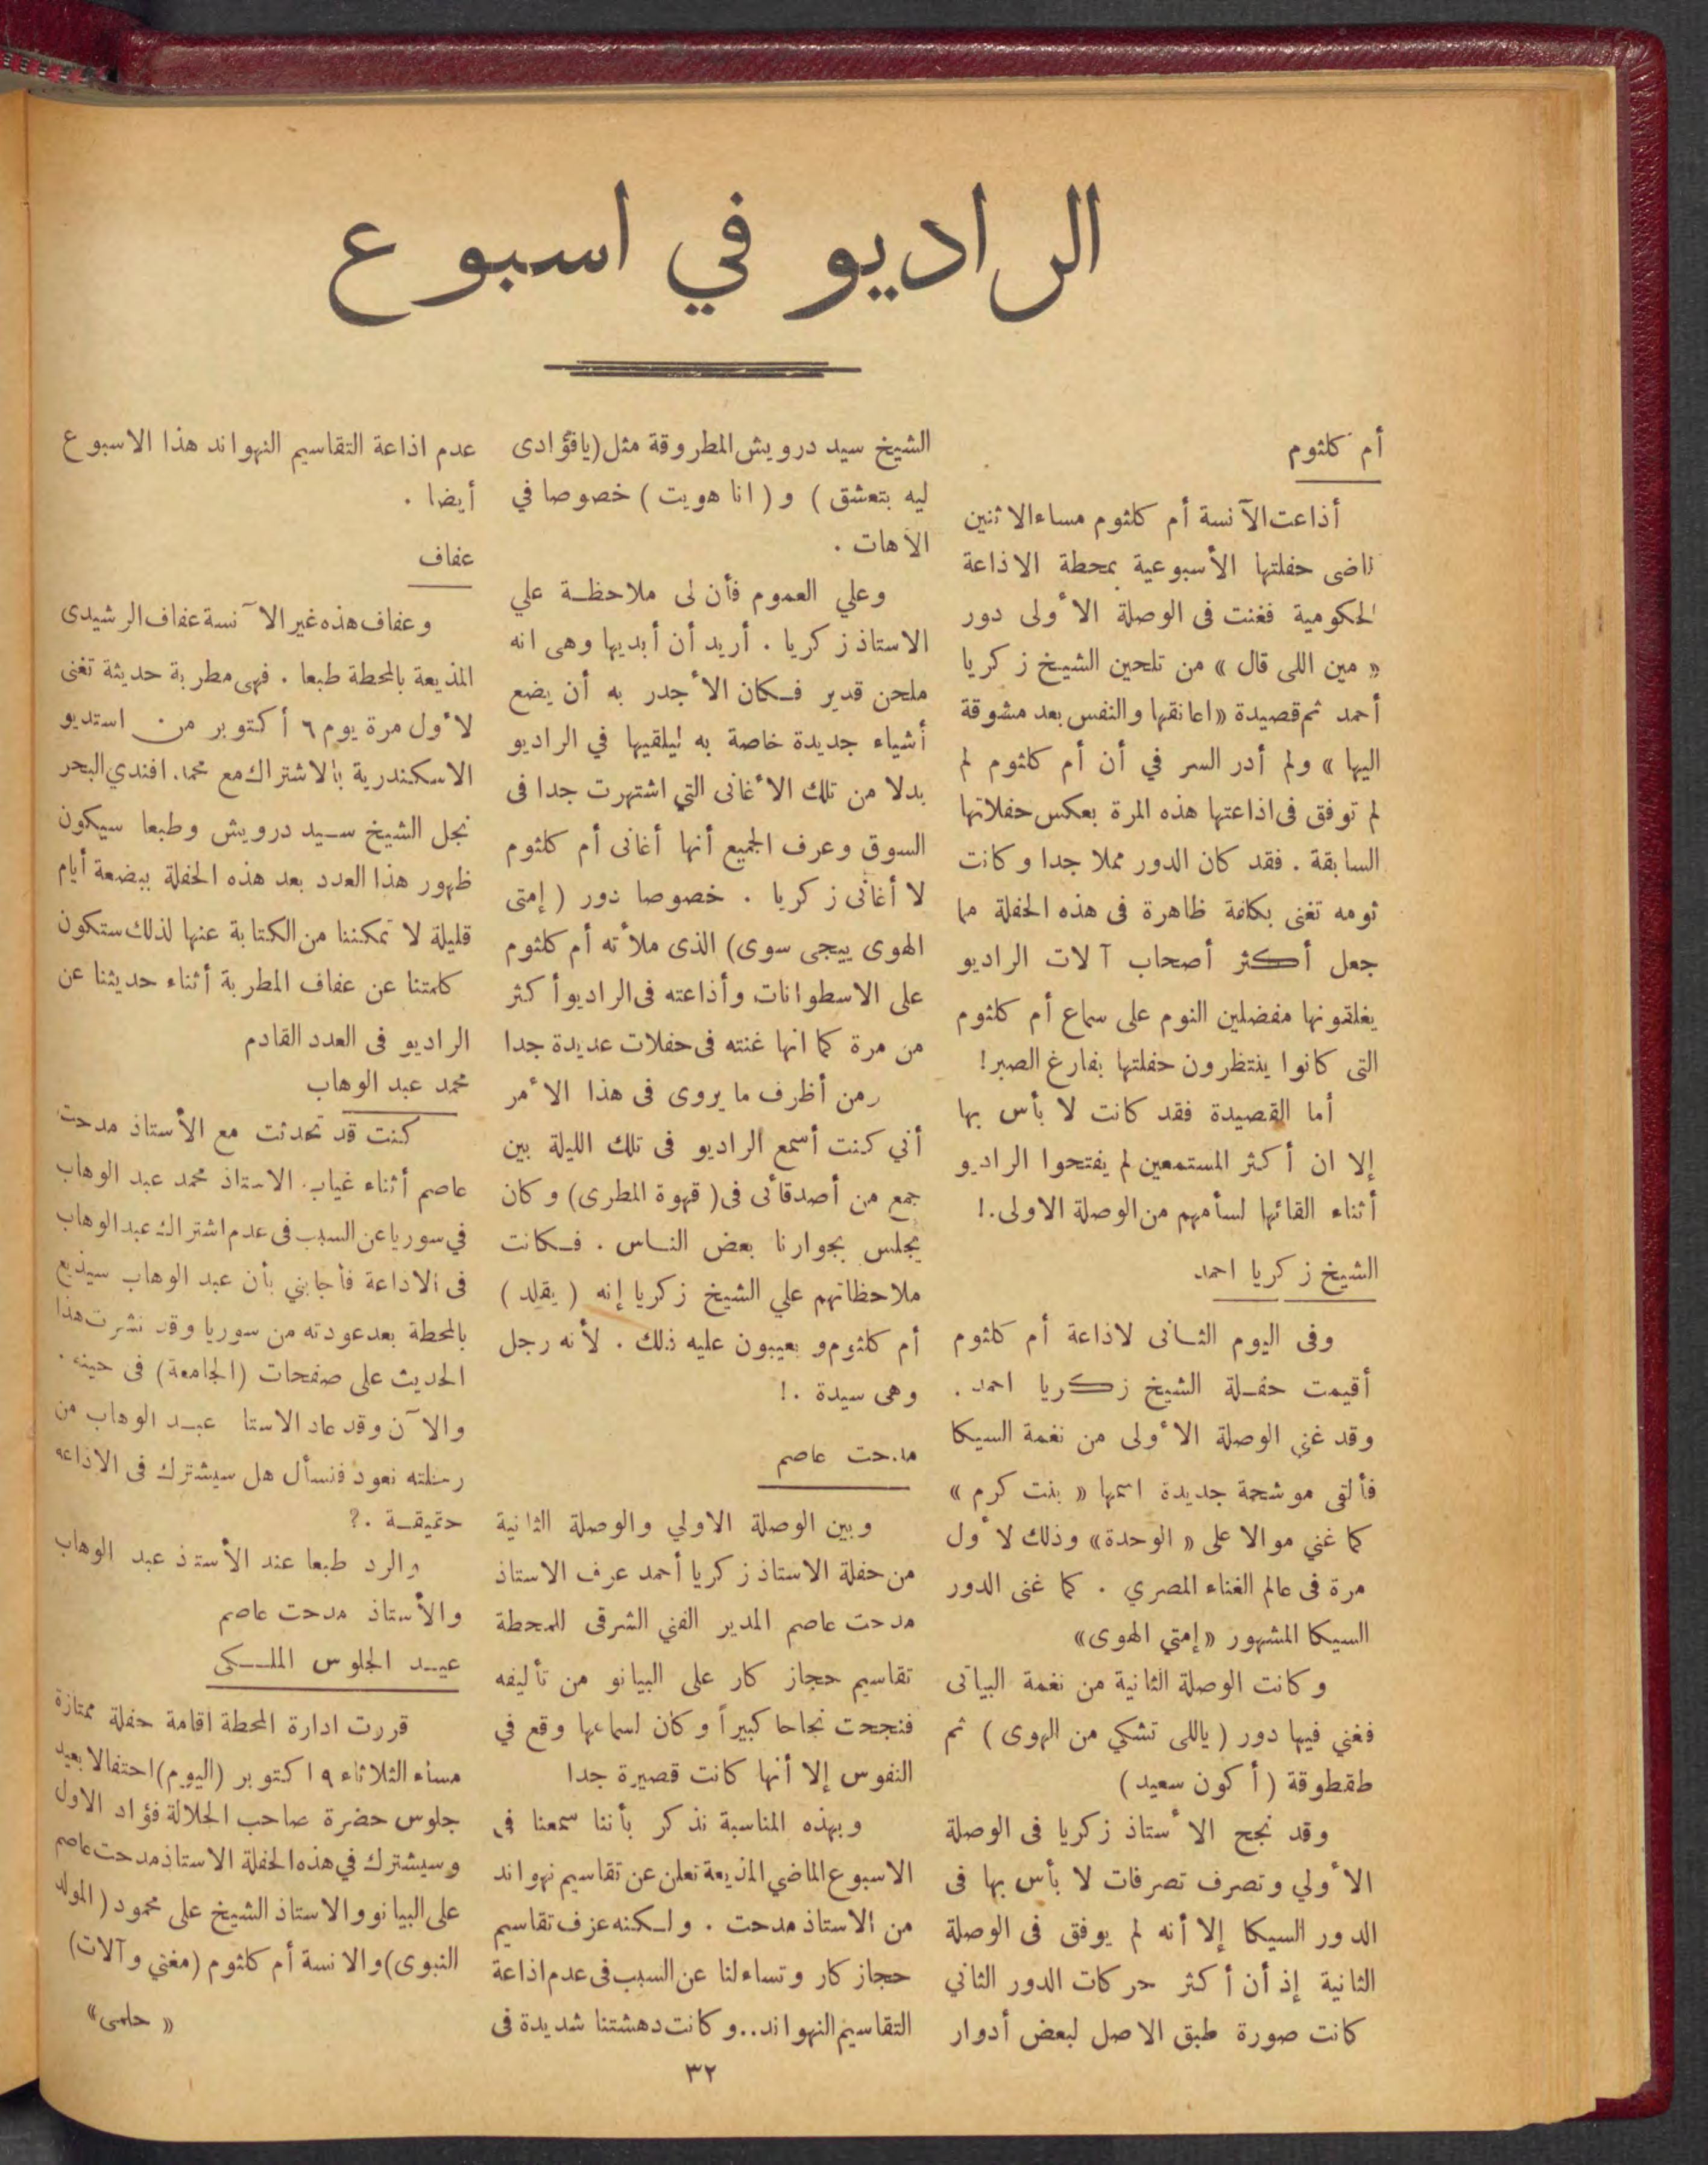 الراديو في اسبوع
أم كلثوم
أذاعت الآنسة أم كلثوم مساء الاثنين
الماضى حفلتها الأسبوعية بمحطة الاذاعة
الحكومية فغنت فى الوصلة الأولى دور
« مين اللى قال » من تلحين الشيخ زكريا
أحمد ثم قصيدة « اعانقها والنفس بعد مشوقة
اليها » ولم أدر السر في أن أم كلثوم لم
لم توفق فى اذاعتها هذه المرة بعكس حفلاتها
السابقة . فقد كان الدور مملا جدا وكانت
ثومه تغنى بكلفة ظاهرة فى هذه الحفلة مما
جعل أكثر أصحاب آلات الراديو
يغلقونها مفضلين النوم على سماع أم كلثوم
التى كانوا ينتظرون حفلتها بفارغ الصبر !
أما القصيدة فقد كانت لا بأس بها
إلا ان أكثر المستمعين لم يفتحوا الراديو
أثناء القائها لسأمهم من الوصلة الاولى . !
الشيخ زكريا احمد
وفى اليوم الثانى لاذاعة أم كلثوم
أقيمت حفلة الشيخ زكريا احمد .
وقد غنى الوصلة الأولى من نغمة السيكا
فألقى موشحة جديدة اسمها « بنت كرم »
كما غني موالا على « الوحدة » وذلك لأول
مرة فى عالم الغناء المصري . كما غنى الدور
السيكا المشهور « إمتي الهوى »
وكانت الوصلة الثانية من نغمة البياتى
فغني فيها دور ( ياللى تشكي من الهوى ) ثم
طقطوقة ( أكون سعيد )
وقد نجح الأستاذ زكريا فى الوصلة
الأولي وتصرف تصرفات لا بأس بها فى
الدور السيكا إلا أنه لم يوفق فى الوصلة
الثانية إذ أن أكثر حركات الدور الثاني
كانت صورة طبق الاصل لبعض أدوار
الشيخ سيد درويش المطروقة مثل ( يافؤادى
ليه بتعشق ) و ( انا هويت ) خصوصا في
الآهات .
وعلي العموم فأن لى ملاحظة علي
الاستاذ زكريا . أريد أن أبديها وهى انه
ملحن قدير فكان الأجدر به أن يضع
أشياء جديدة خاصة به ليلقيها في الراديو
بدلا من تلك الأغانى التي اشتهرت جدا فى
السوق وعرف الجميع أنها أغانى أم كلثوم
لا أغانى زكريا . خصوصا دور ( إمتى
الهوى ييجى سوى ) الذى ملأته أم كلثوم
على الاسطوانات وأذاعته فى الراديو أكثر
من مرة كما انها غنته فى حفلات عديدة جدا
ومن أظرف ما يروى فى هذا الأمر
أني كنت أسمع الراديو فى تلك الليلة بين
جمع من أصدقائى فى ( قهوة المطرى ) وكان
يجلس بجوارنا بعض الناس . فكانت
ملاحظاتهم علي الشيخ زكريا إنه ( يقلد )
أم كلثوم ويعيبون عليه ذلك . لأنه رجل
وهى سيدة . !
مدحت عاصم
وبين الوصلة الاولي والوصلة الثانية
من حفلة الاستاذ زكريا أحمد عزف الاستاذ
مدحت عاصم المدير الفني الشرقى للمحطة
تقاسيم حجاز كار على البيانو من تأليفه
فنجحت نجاحا كبيراً وكان لسماعها وقع في
النفوس إلا أنها كانت قصيرة جدا
وبهذه المناسبة نذكر بأننا سمعنا فى
الاسبوع الماضي المذيعة تعلن عن تقاسيم نهواند
من الاستاذ مدحت . ولكنه عزف تقاسيم
حجاز كار وتساءلنا عن السبب فى عدم اذاعة
التقاسيم النهواند .. وكانت دهشتنا شديدة فى
عدم اذاعة التقاسيم النهواند هذا الاسبوع
أيضا .
عفاف
وعفاف هذه غير الآنسة عفاف الرشيدى
المذيعة بالمحطة طبعا . فهى مطربة حديثة تغنى
لأول مرة يوم ٦ أكتوبر من استديو
الاسكندرية بالاشتراك مع محمد افندي البحر
نجل الشيخ سيد درويش وطبعا سيكون
ظهور هذا العدد بعد هذه الحفلة ببضعة أيام
قليلة لا تمكننا من الكتابة عنها لذلك ستكون
كلمتنا عن عفاف المطربة أثناء حديثنا عن
الراديو فى العدد القادم
محمد عبد الوهاب
كنت قد تحدثت مع الأستاذ مدحت
عاصم أثناء غياب الاستاذ محمد عبد الوهاب
في سوريا عن السبب فى عدم اشتراك عبد الوهاب
فى الاذاعة فأجابني بأن عبد الوهاب سيذيع
بالمحطة بعد عودته من سوريا وقد نشرت هذا
الحديث على صفحات ( الجامعة ) فى حينه .
والآن وقد عاد الاستا عبد الوهاب من
رحلته نعود فنسأل هل سيشترك فى الاذاعه
حقيقة . ؟
والرد طبعا عند الأستاذ عبد الوهاب
والأستاذ مدحت عاصم
عيد الجلوس الملكى
قررت ادارة المحطة اقامة حفلة ممتازة
مساء الثلاثاء ٩ اكتوبر ( اليوم ) احتفالا بعيد
جلوس حضرة صاحب الجلالة فؤاد الاول
وسيشترك في هذه الحفلة الاستاذ مدحت عاصم
على البيانو والاستاذ الشيخ على محمود ( المولد
النبوى ) والانسة أم كلثوم ( مغني وآلات )
« حلمى »
٣٢